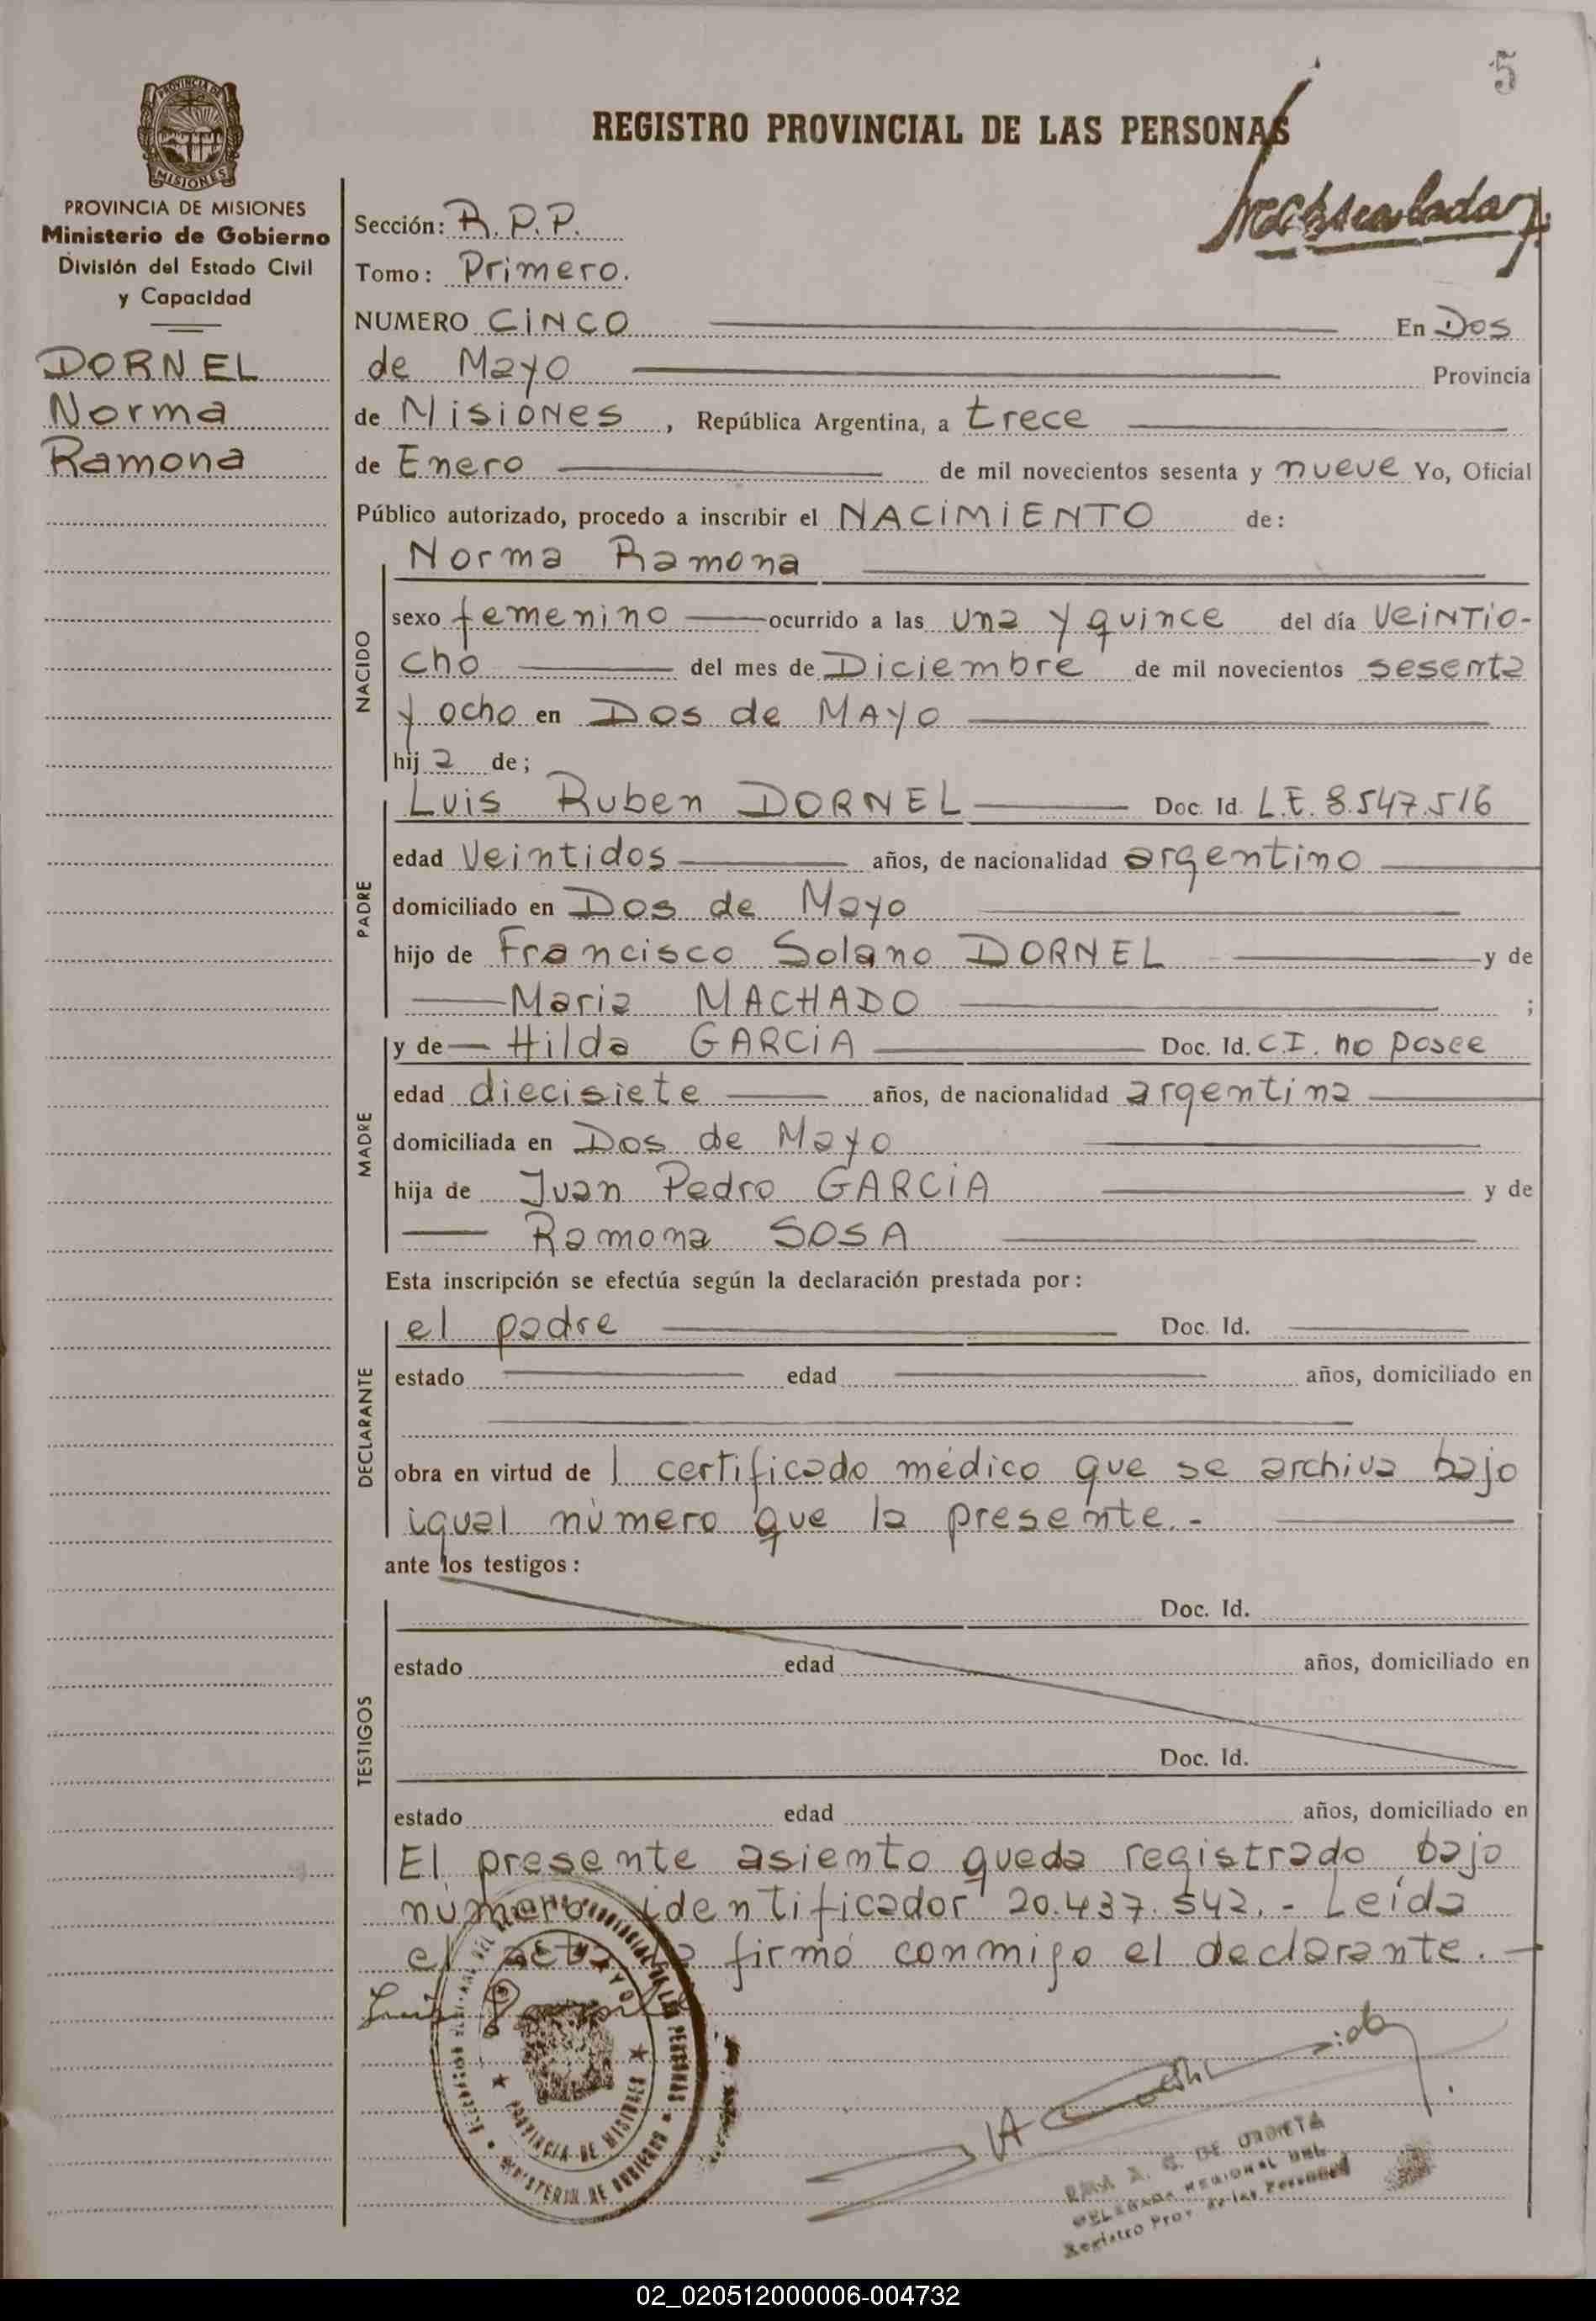 5
REGISTRO PROVINCIAL DE LAS PERSONAS
PROVINCIA DE
MISIONES
PROVINCIA DE MISIONES
Ministerio de Gobierno
División del Estado Civil
y Capacidad
DORNEL
Norma
Ramona
Sección: R.P.P.
Tomo: Primero.
NUMERO CINCO En Dos
de Mayo Provincia
de Misiones, República Argentina, a trece
de Enero de mil novecientos sesenta y nueve Yo, Oficial
Público autorizado, procedo a inscribir el NACIMIENTO de:
Norma Ramona
NACIDO
sexo femenino ocurrido a las una y quince del día veintio-
cho del mes de Diciembre de mil novecientos sesenta
y ocho en Dos de Mayo
hija de;
PADRE
Luis Ruben DORNEL Doc. Id. L.E. 8.547.516
edad Veintidos años, de nacionalidad argentino
domiciliado en Dos de Mayo
hijo de Francisco Solano DORNEL y de
Maria MACHADO ;
MADRE
y de Hilda GARCIA Doc. Id. C.I. no posee
edad diecisiete años, de nacionalidad argentina
domiciliada en Dos de Mayo
hija de Juan Pedro GARCIA y de
Ramona SOSA
Esta inscripción se efectúa según la declaración prestada por:
DECLARANTE
el padre Doc. Id.
estado edad años, domiciliado en
obra en virtud de 1 certificado médico que se archiva bajo
igual número que la presente.-
ante los testigos:
TESTIGOS
Doc. Id.
estado edad años, domiciliado en
Doc. Id.
estado edad años, domiciliado en
El presente asiento queda registrado bajo
número identificador 20.437.542.- Leída
el acta la firmó conmigo el declarante.-
Luis
PROVINCIA DE MISIONES
MINISTERIO DE GOBIERNO
A. G. DE URRIETA
DELEGADA REGIONAL DEL
Registro Prov. de las Personas
02_020512000006-004732